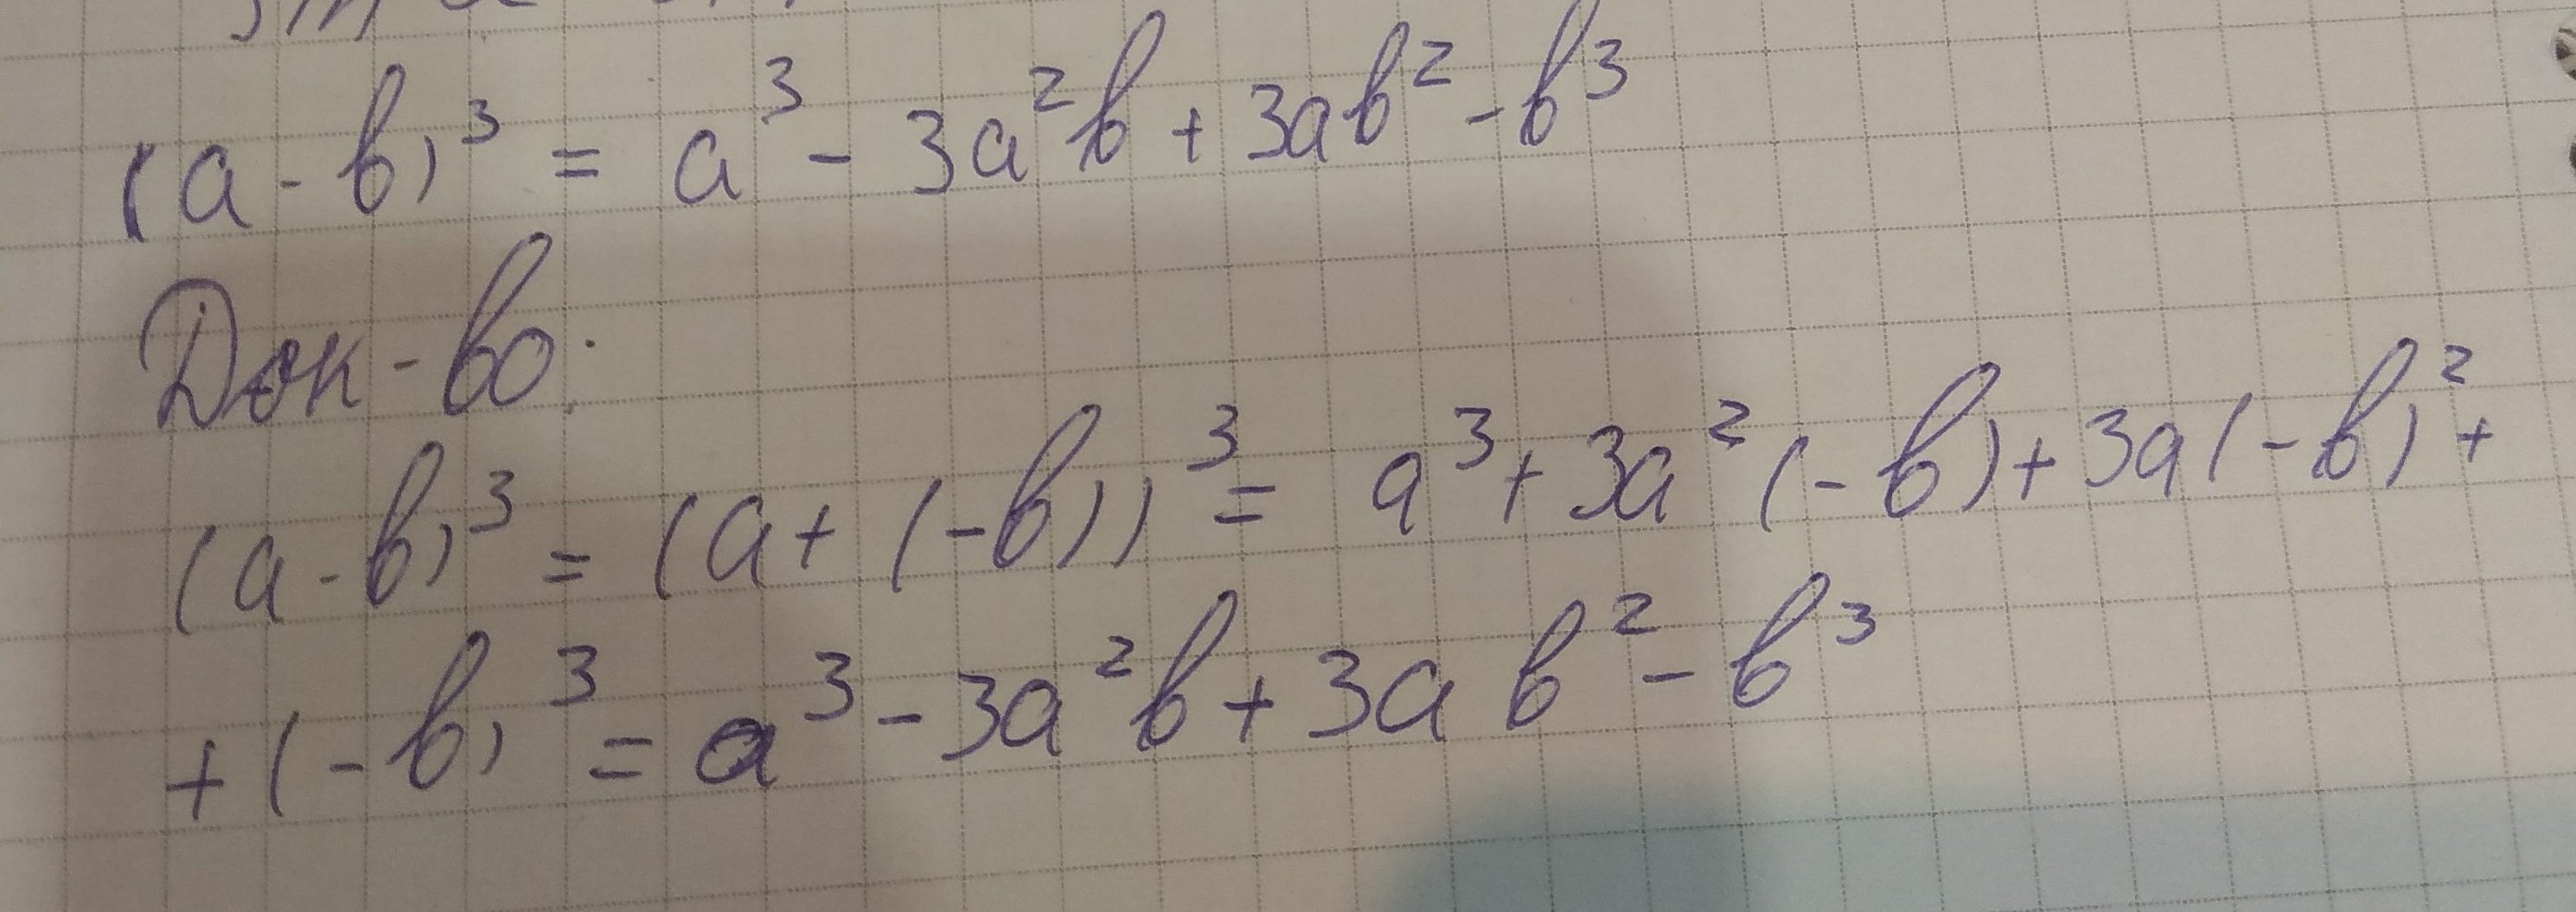 (a-b)³ = a³ - 3a²b + 3ab² - b³
Док-во:
(a-b)³ = (a+(-b))³ = a³ + 3a²(-b) + 3a(-b)² +
+ (-b)³ = a³ - 3a²b + 3ab² - b³